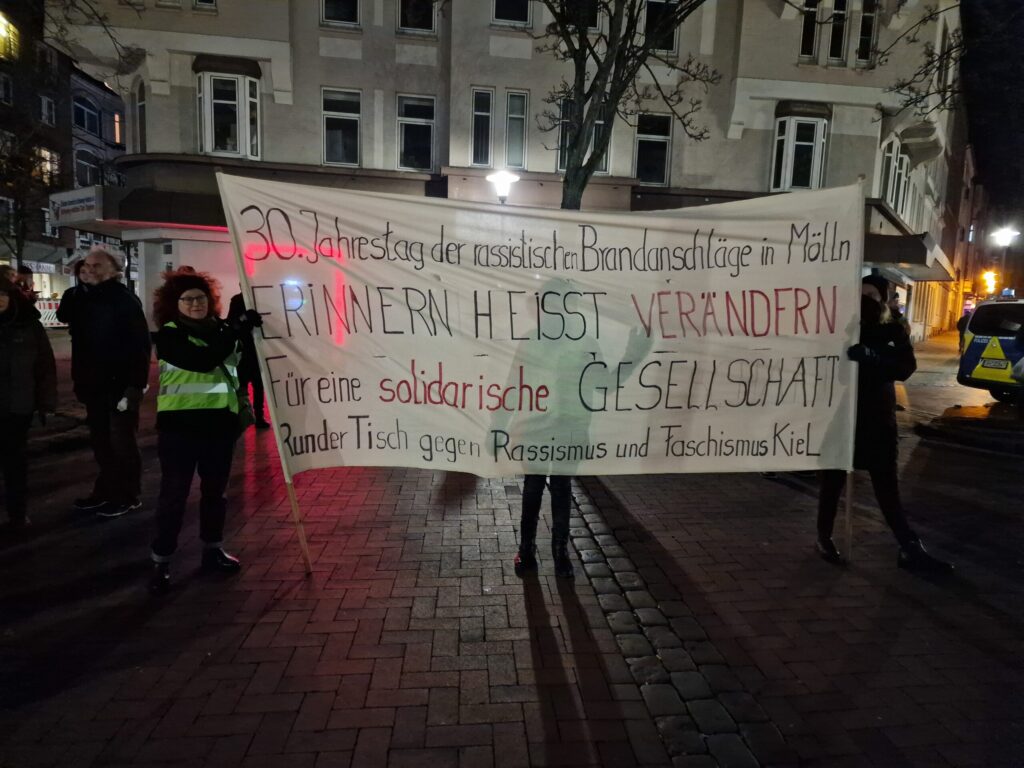 30. Jahrestag der rassistischen Brandanschläge in Mölln
ERINNERN HEISST VERÄNDERN
Für eine solidarische GESELLSCHAFT
Runder Tisch gegen Rassismus und Faschismus Kiel